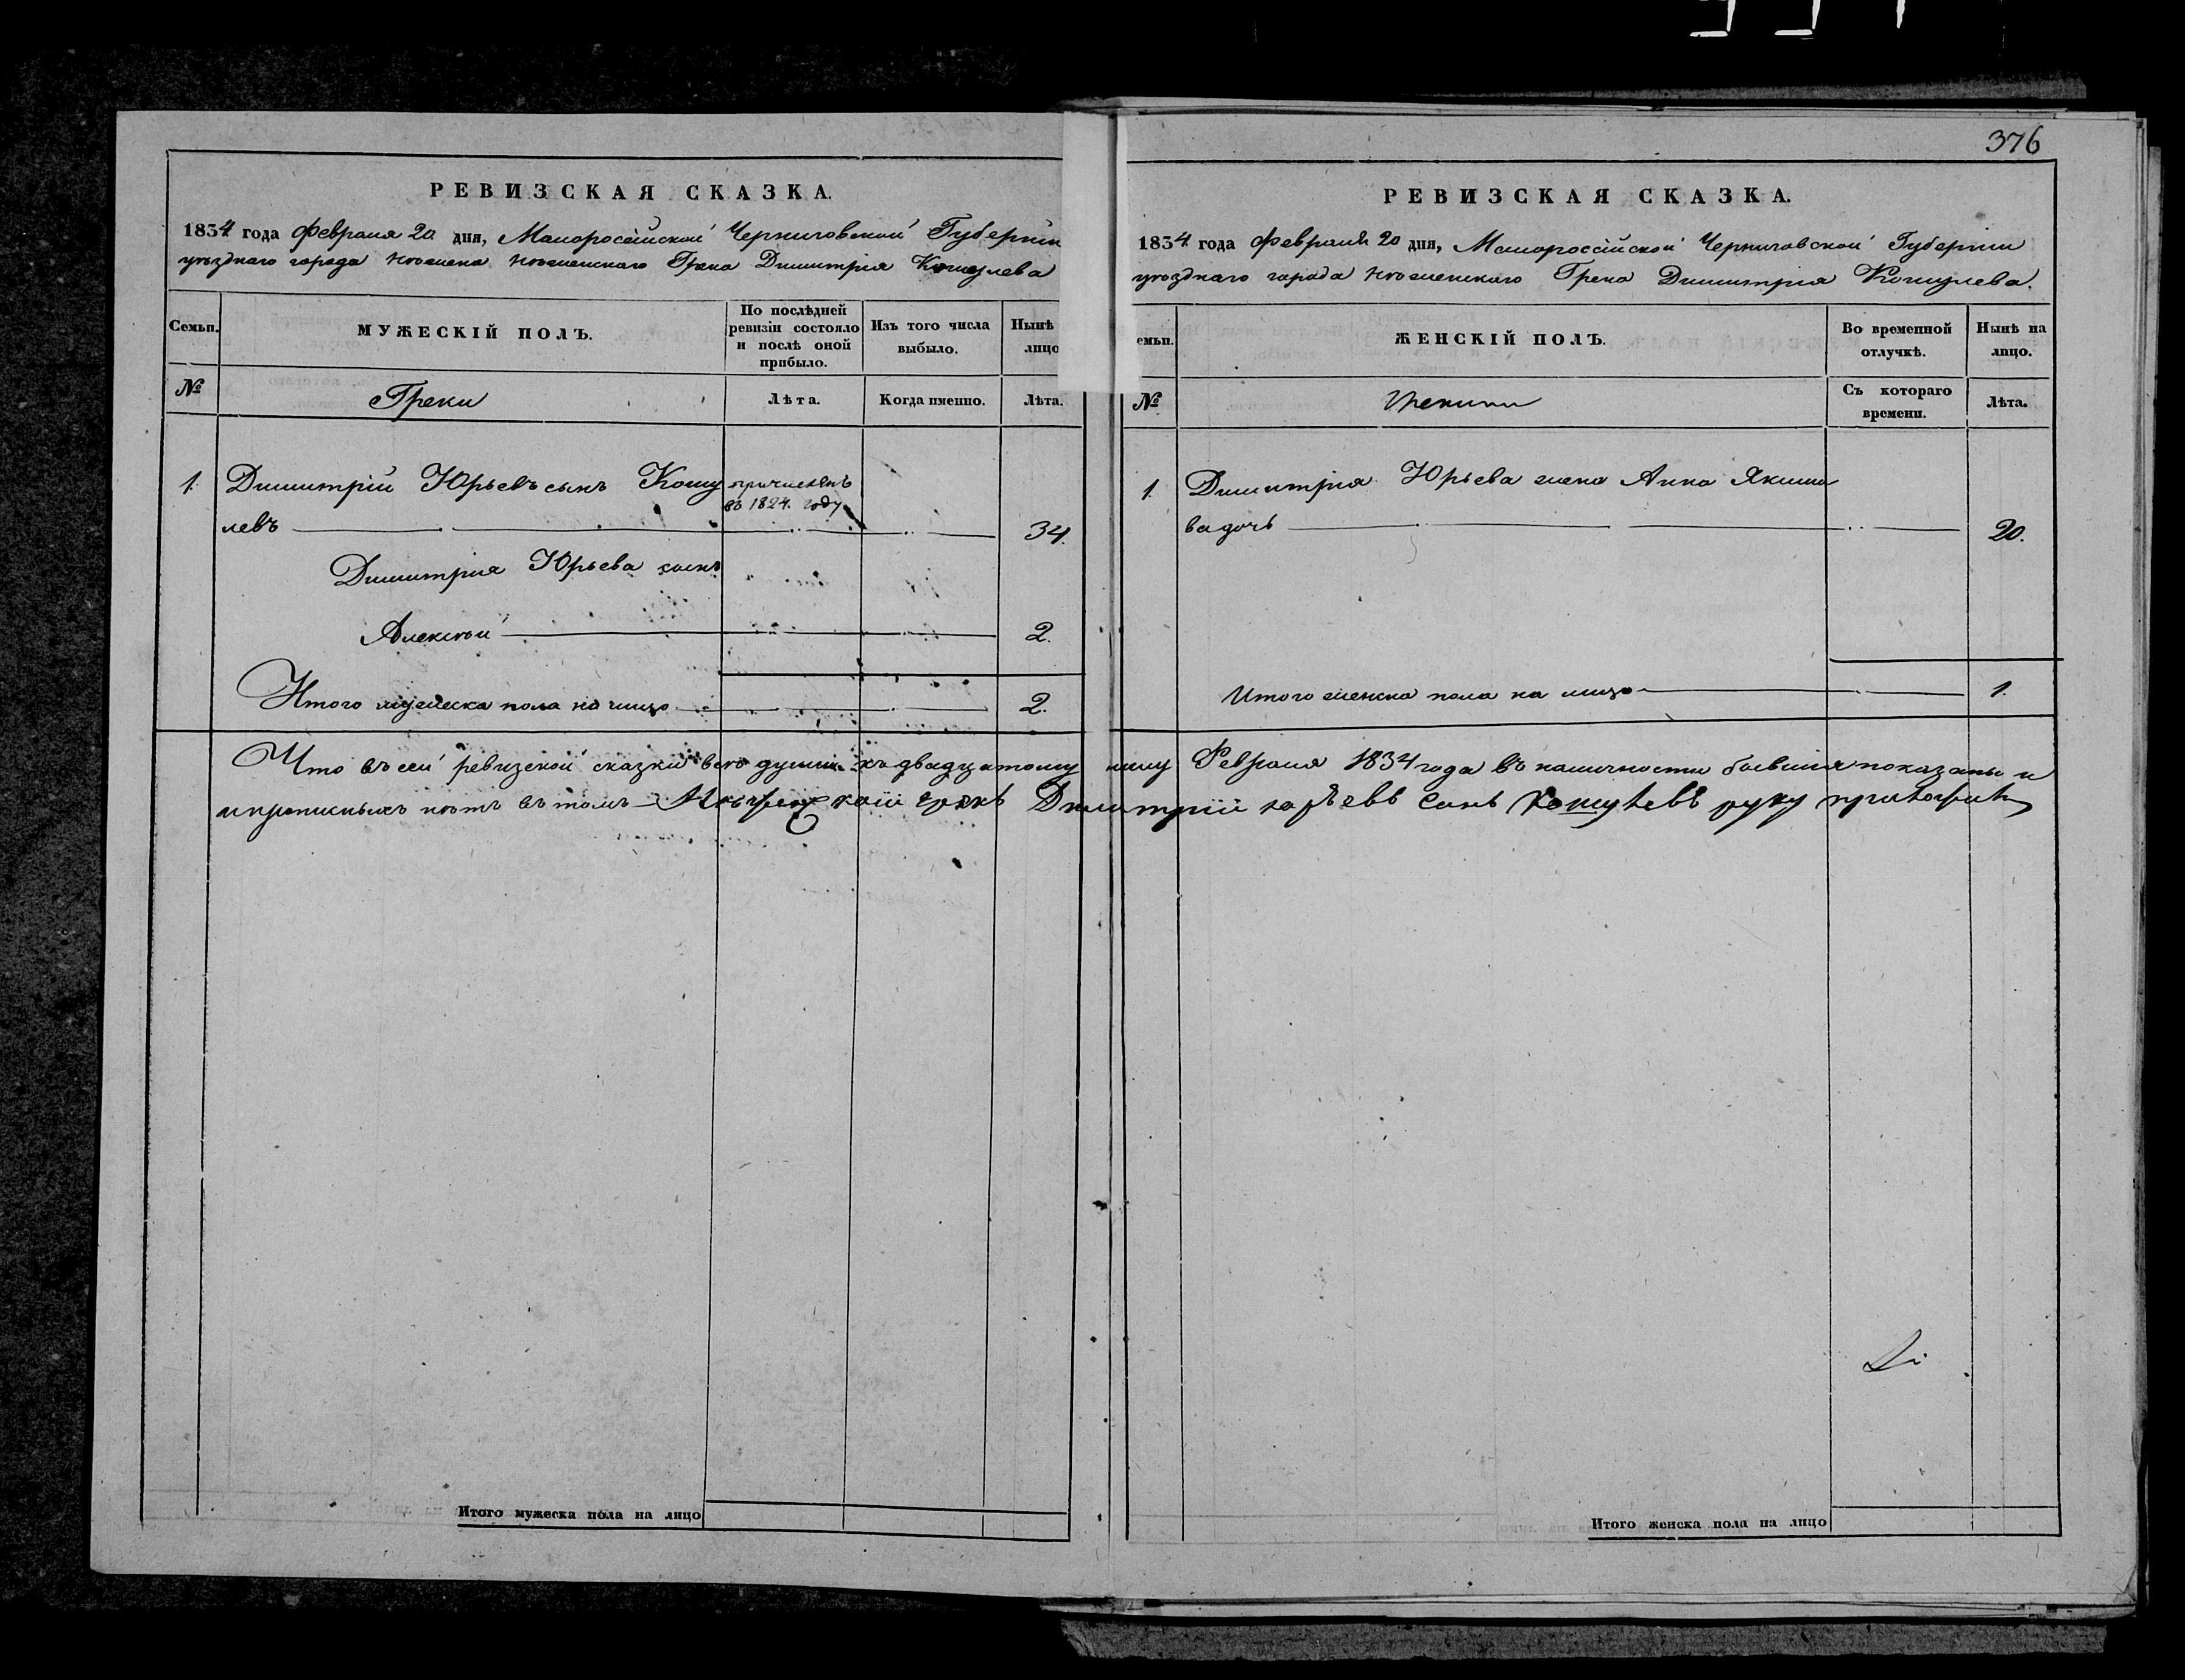 376
РЕВИЗСКАЯ СКАЗКА.
1834 года Февраля 20 дня, Малороссійской Черниговской Губерніи
уѣзднаго города Нѣжина Нѣжинскаго Грека Димитрія Кошулева
Семьи.
МУЖЕСКІЙ ПОЛЪ.
По послѣдней ревизіи состояло и послѣ оной прибыло.
Изъ того числа выбыло.
Нынѣ
лицо
№
Греки
Лѣта.
Когда именно.
Лѣта.
1. Димитрій Юрьевъ сынъ Кошу причисленъ
въ 1824. году
левъ 34.
Димитрія Юрьева сынъ
Алексѣй 2.
Итого мужеска пола на лицо 2.
РЕВИЗСКАЯ СКАЗКА.
1834 года Февраля 20 дня, Малороссійской Черниговской Губерніи
уѣзднаго города Нѣжинскаго Грека Димитрія Кошулева.
емьи.
ЖЕНСКІЙ ПОЛЪ.
Во временной отлучкѣ.
Нынѣ на лицо.
№
Съ котораго времени.
Лѣта.
1. Димитрія Юрьева жена Анна Якимо
ва дочь 20.
Итого женска пола на лицо 1.
Что въ сей ревизской сказки всѣ души къ двадцатому числу Февраля 1834 года въ наличности бывшія показаны и
и прописныхъ нѣтъ въ томъ грекъ Димитрій юрьевъ Синъ Кошулевъ руку приложилъ
Итого мужеска пола на лицо
Итого женска пола на лицо